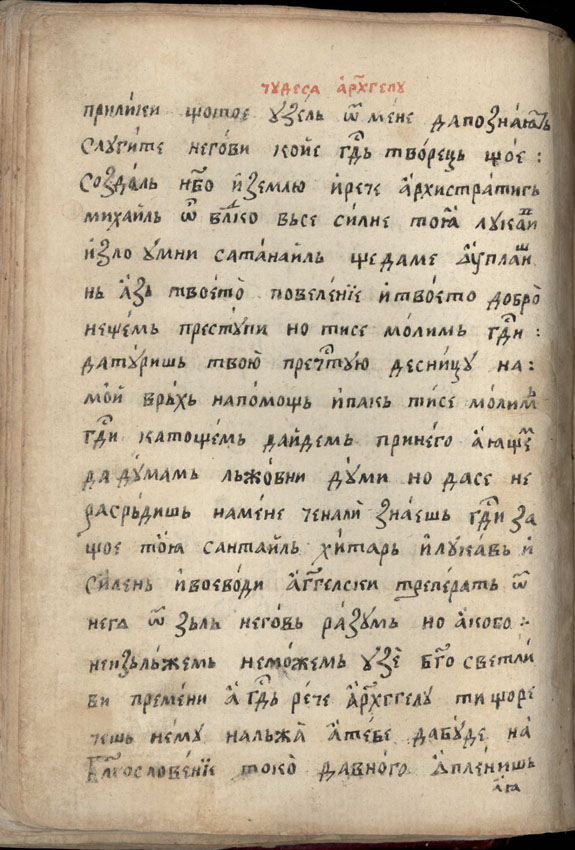 чꙋдеса а҆рх҃гелꙋ
прилики щотое ꙋзель ѿ мене да познаютъ
слꙋгите негови кои̇е гд҃ь творець щое :
создаль нб҃о и҆ землю и҆рече а҆рхистратигь
михаиль ѿ влико вьсе силне тоꙗ лꙋкави
и҆зло ꙋмни сатанаиль щедаме
нь а҆зь твоето повеленїе и҆твоето добро
нещемь престꙋпи но тисе молимь гд҃и :
датꙋришь твою̀ преч҃тꙋю десницꙋ на :
мой врьхь напомощь и҆пакь тисе молимь
гд҃и катощемь даи̇демь при него а҆ꙗще
да дꙋмамь льжовни дꙋми но дасе не
расрьдишь намене чена ли знаешь гд҃и за
щое тоꙗ сантаиль хитарь и҆лꙋкавь и҆
силень и҆воеводи а҆гг҃елски треперать ѿ
него ѿ зьль неговь разꙋмь но а҆кобо :·
неизьльжемь неможемь ꙋзе бг҃о светли
ви премени а҆ гд҃ь рече а҆рх҃ггелꙋ ти щоре
чешь немꙋ нальжа а҆тебе дабꙋде на
бл҃гословенїе токо давного а҆пленишь